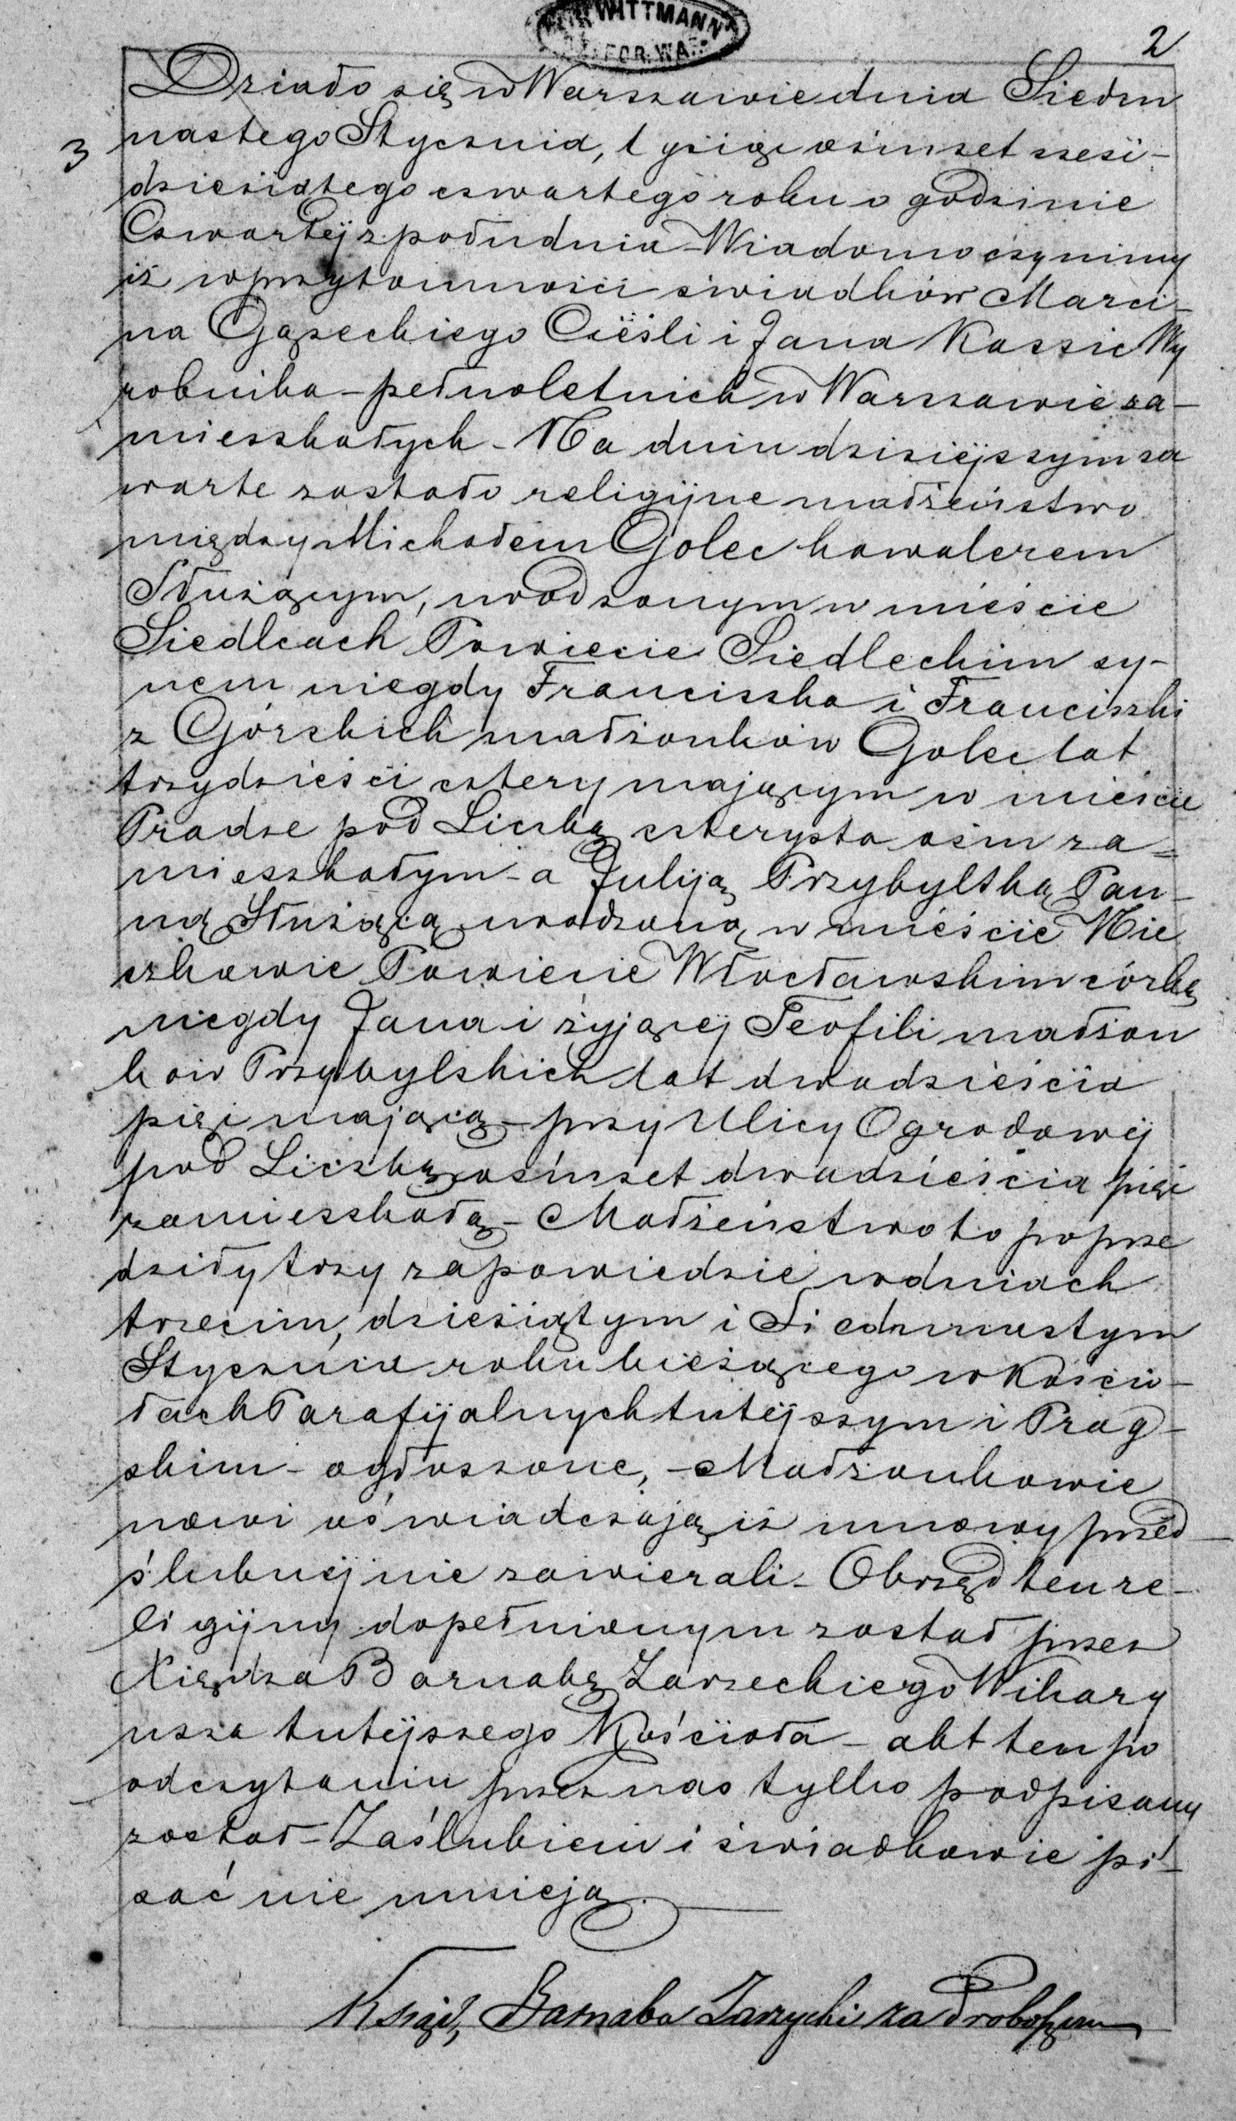 WITTMANN
FOR. WAR
2
Działo się w Warszawie dnia Siedm
3
nastego Stycznia, tysiąc ośmset sześć-
dziesiątego czwartego roku o godzinie
Czwartej z południa – Wiadomo czynimy
iż w przytomności świadków Marci-
na Gąseckiego Cieśli i Jana Kassic Wy
robnika – pełnoletnich w Warszawie za-
mieszkałych – Na dniu dzisiejszym za
warte zostało religijne małżeństwo
między Michałem Golec kawalerem
Służącym, urodzonym w mieście
Siedlcach Powiecie Siedleckim sy-
nem niegdy Franciszka i Franciszki
z Górskich małżonków Golec lat
trzydzieści cztery mającym w mieście
Pradze pod Liczbą czterysta ośm za=
mieszkałym – a Juliją Przybylską Pan-
ną Służącą urodzoną w mieście Nie
szkowie Powiecie Włocławskim córką
niegdy Jana i żyjącej Teofili małżon
ków Przybylskich lat dwadzieścia
pięć mającą – przy Ulicy Ogrodowej
pod Liczbą ośmset dwadzieścia pięć
zamieszkałą – Małżeństwo to poprze
dziły trzy zapowiedzie w dniach
trzecim, dziesiątym i Siedmnastym
Stycznia roku bieżącego w Kościo-
łach Parafijalnych tutejszym i Prag-
skim – ogłoszone, – Małżonkowie
nowi oświadczają iż umowy przed-
ślubnej nie zawierali – Obrzęd ten re-
ligijny dopełnionym został przez
Xiędza Barnabę Zarzeckiego Wikary
usza tutejszego Kościoła – akt ten po
odczytaniu przez nas tylko podpisany
został – Zaślubieni i świadkowie pi-
sać nie umieją.
Ksiądz Barnaba Zarzycki za Proboszcza